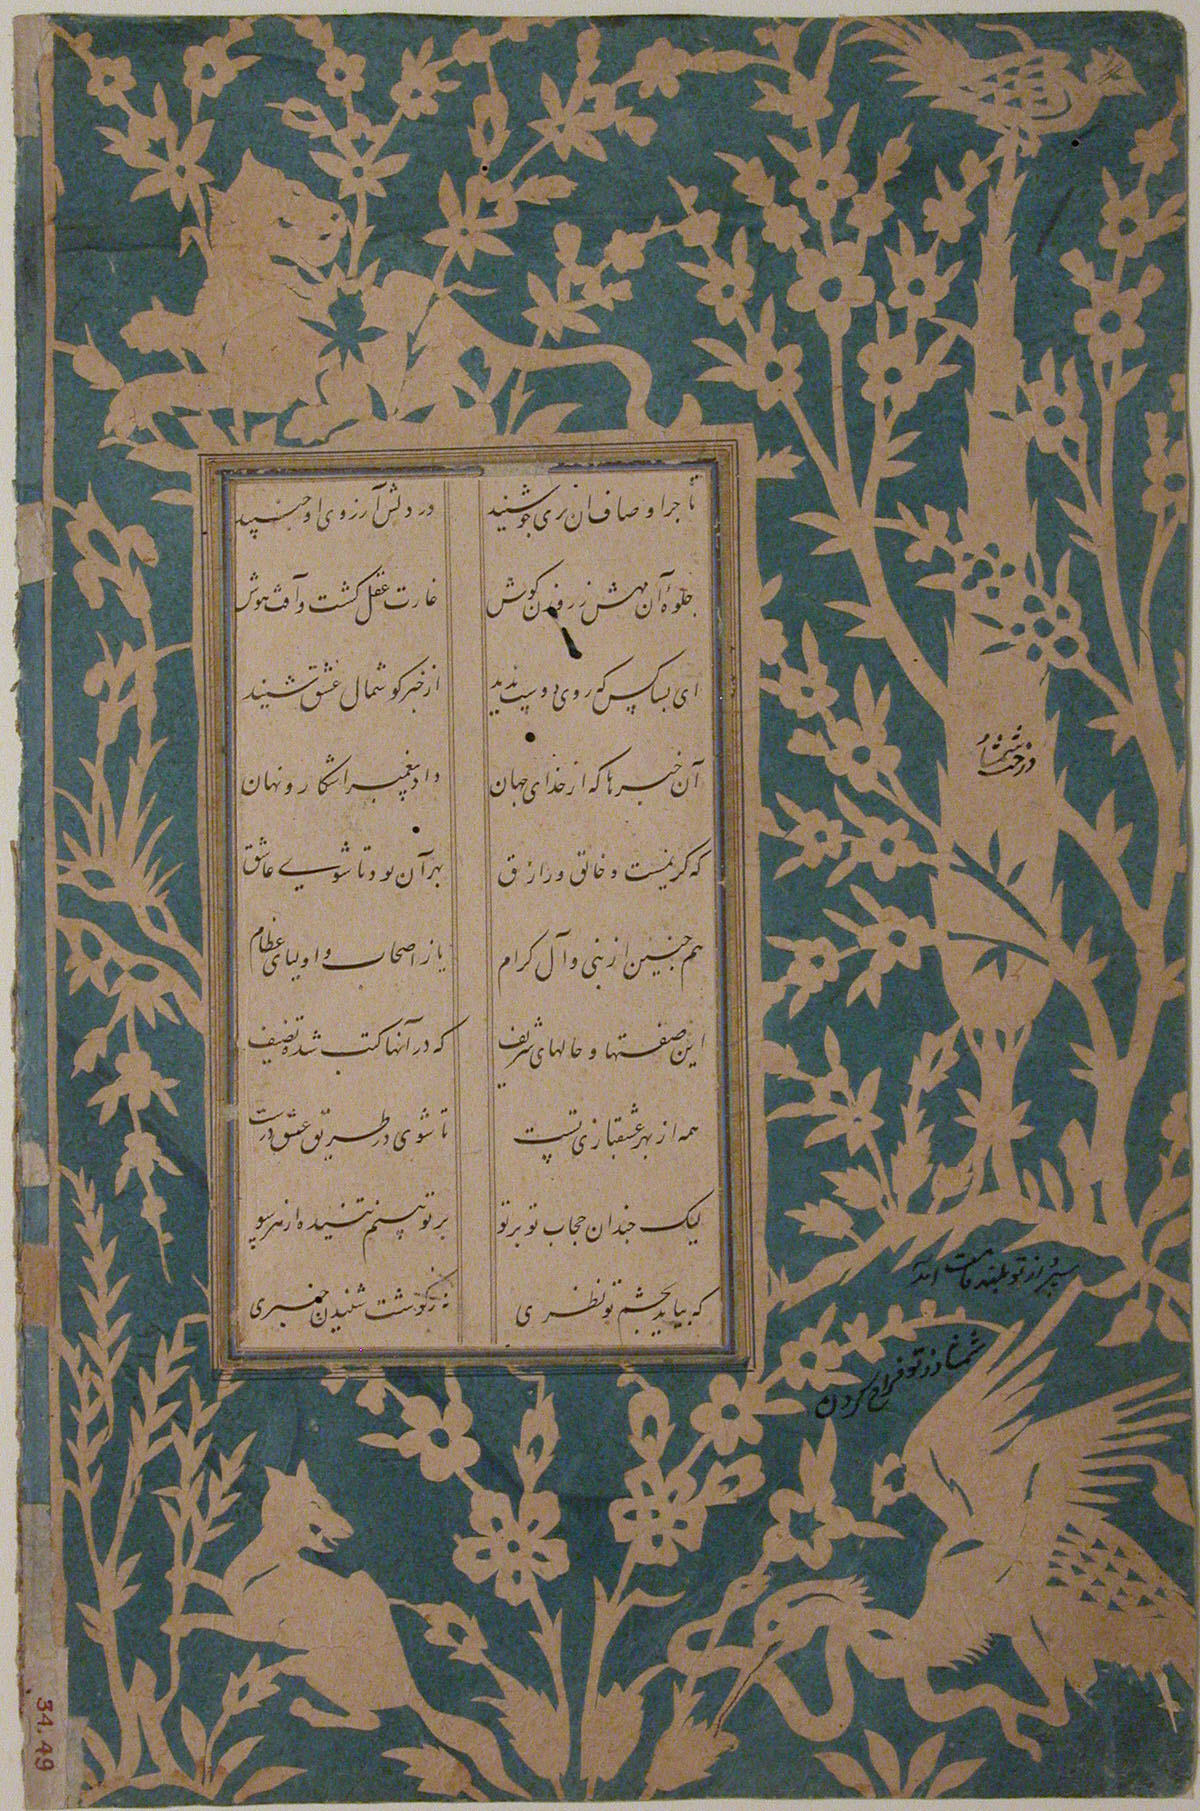 تا جرا وصاف ان بری جوشنید
در دلش آرزوی او جنبید
جلوهٔ آن مهش ز رفدن کوش
غارت عقل کشت و آفت هوش
ای بسا کس که روی دوست ندید
از خبر کو شمال عشق شنید
آن خبرها که از خذای جهان
داد پیغمبر اشکار و نهان
که کریمست و خالق و رازق
بهر آن بود تا شوی عاشق
هم جنین از نبی و آل کرام
باز اصحاب و اولیای عظام
این صفتها و حالهای شریف
که در آنها کتب شده تصنیف
همه از بهر عشقبازی تست
تا شوی در طریق عشق درست
لیک جندان حجاب تو بر تو
بر تو بینم تنیده از هر سو
که بیاید بجشم تو نظری
نه ز کوشت شنیدن خبری
درخت شمشاد
سرو از تو بلند قامت آمد
شمشاد ز تو فراخ کردن
34.49